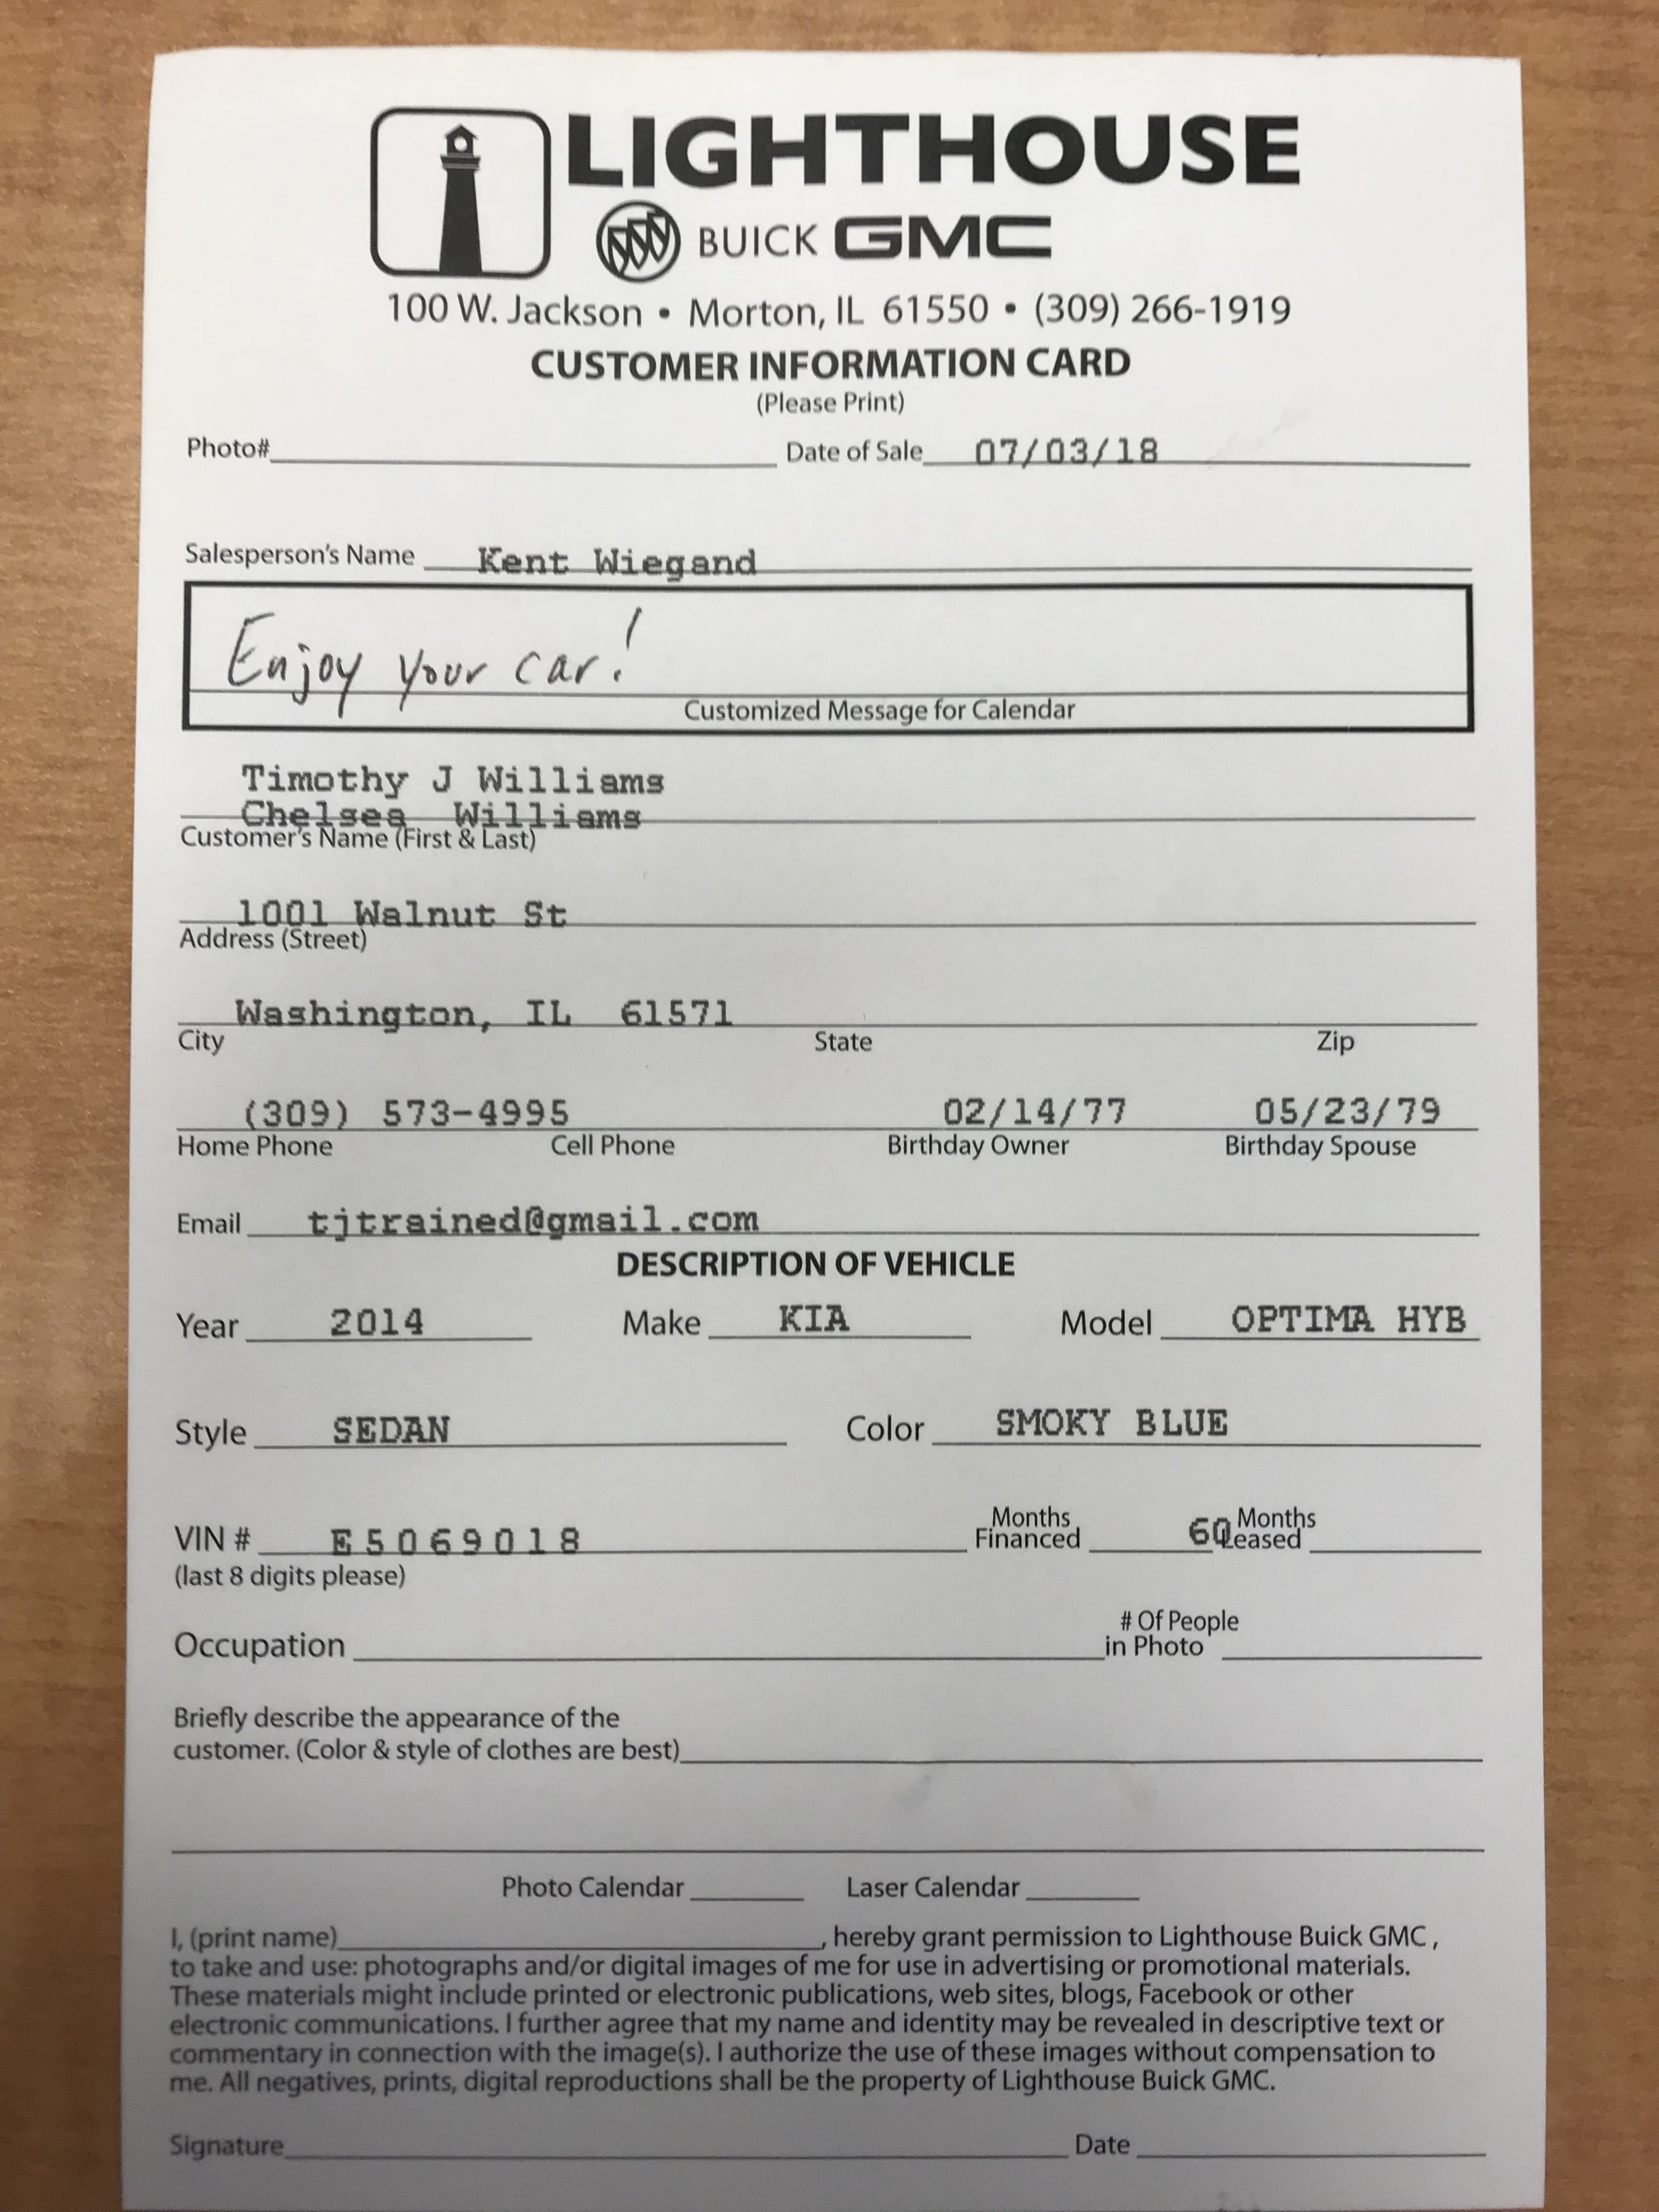 LIGHTHOUSE
BUICK GMC
100 W. Jackson • Morton, IL 61550 • (309) 266-1919
CUSTOMER INFORMATION CARD
(Please Print)
Photo# Date of Sale 07/03/18
Salesperson's Name Kent Wiegand
Enjoy your car!
Customized Message for Calendar
Timothy J Williams
Chelsea Williams
Customer's Name (First & Last)
1001 Walnut St
Address (Street)
Washington, IL 61571
City State Zip
(309) 573-4995 02/14/77 05/23/79
Home Phone Cell Phone Birthday Owner Birthday Spouse
Email tjtrained@gmail.com
DESCRIPTION OF VEHICLE
Year 2014 Make KIA Model OPTIMA HYB
Style SEDAN Color SMOKY BLUE
VIN # E5069018 Months Financed 60 Months Leased
(last 8 digits please)
Occupation # Of People in Photo
Briefly describe the appearance of the
customer. (Color & style of clothes are best)
Photo Calendar Laser Calendar
I, (print name) , hereby grant permission to Lighthouse Buick GMC ,
to take and use: photographs and/or digital images of me for use in advertising or promotional materials.
These materials might include printed or electronic publications, web sites, blogs, Facebook or other
electronic communications. I further agree that my name and identity may be revealed in descriptive text or
commentary in connection with the image(s). I authorize the use of these images without compensation to
me. All negatives, prints, digital reproductions shall be the property of Lighthouse Buick GMC.
Signature Date